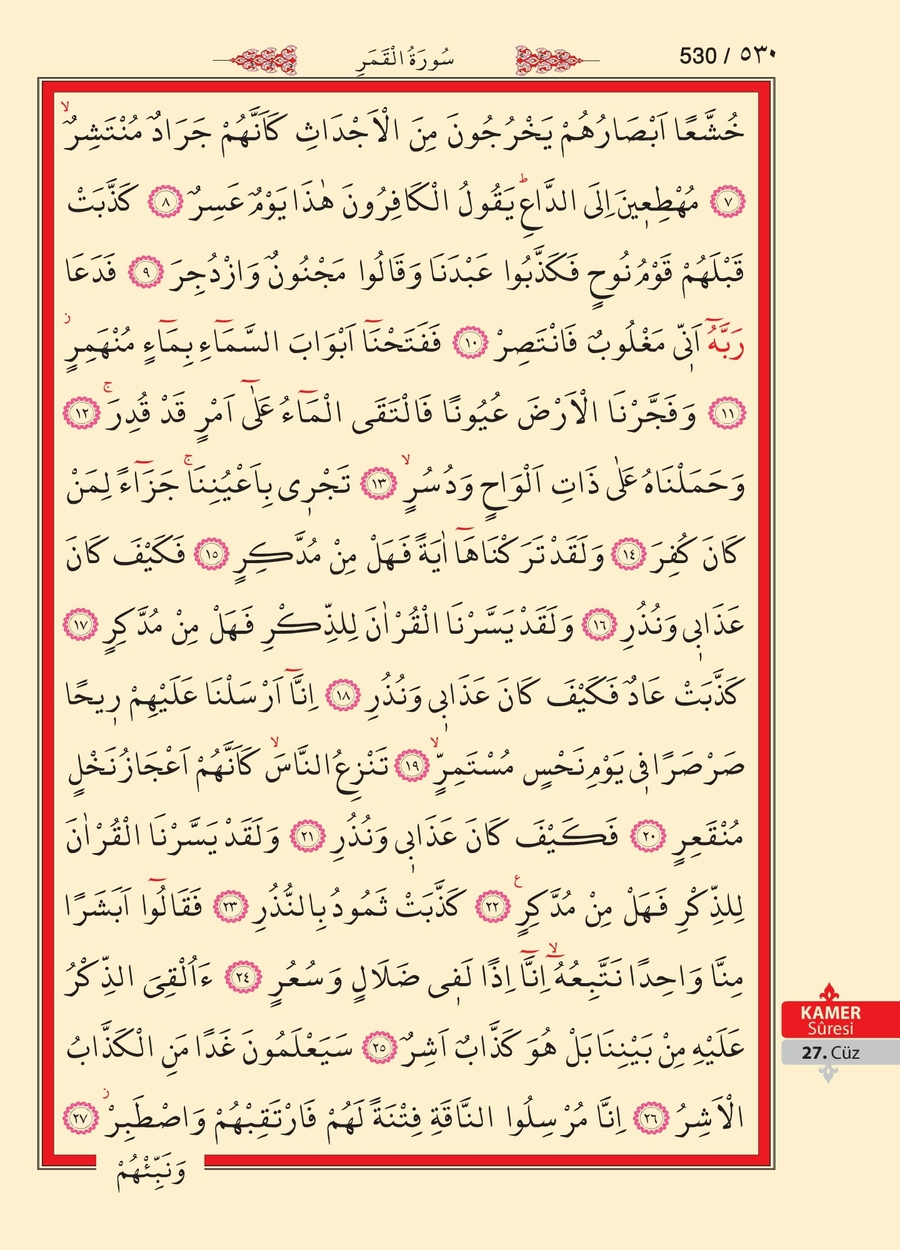 سُورَةُ الْقَمَرِ
530 / ٥٣٠
خُشَّعًا اَبْصَارُهُمْ يَخْرُجُونَ مِنَ الْاَجْدَاثِ كَاَنَّهُمْ جَرَادٌ مُنْتَشِرٌۙ
﴿٧﴾ مُهْطِعٖينَ اِلَى الدَّاعِؕ يَقُولُ الْكَافِرُونَ هٰذَا يَوْمٌ عَسِرٌ ﴿٨﴾ كَذَّبَتْ
قَبْلَهُمْ قَوْمُ نُوحٍ فَكَذَّبُوا عَبْدَنَا وَقَالُوا مَجْنُونٌ وَازْدُجِرَ ﴿٩﴾ فَدَعَا
رَبَّهُٓ اَنّٖي مَغْلُوبٌ فَانْتَصِرْ ﴿١٠﴾ فَفَتَحْنَٓا اَبْوَابَ السَّمَٓاءِ بِمَٓاءٍ مُنْهَمِرٍؗ
﴿١١﴾ وَفَجَّرْنَا الْاَرْضَ عُيُونًا فَالْتَقَى الْمَٓاءُ عَلٰٓى اَمْرٍ قَدْ قُدِرَۚ ﴿١٢﴾
وَحَمَلْنَاهُ عَلٰى ذَاتِ اَلْوَاحٍ وَدُسُرٍۙ ﴿١٣﴾ تَجْرٖي بِاَعْيُنِنَاۚ جَزَٓاءً لِمَنْ
كَانَ كُفِرَ ﴿١٤﴾ وَلَقَدْ تَرَكْنَاهَٓا اٰيَةً فَهَلْ مِنْ مُدَّكِرٍ ﴿١٥﴾ فَكَيْفَ كَانَ
عَذَابٖي وَنُذُرِ ﴿١٦﴾ وَلَقَدْ يَسَّرْنَا الْقُرْاٰنَ لِلذِّكْرِ فَهَلْ مِنْ مُدَّكِرٍ ﴿١٧﴾
كَذَّبَتْ عَادٌ فَكَيْفَ كَانَ عَذَابٖي وَنُذُرِ ﴿١٨﴾ اِنَّٓا اَرْسَلْنَا عَلَيْهِمْ رٖيحًا
صَرْصَرًا فٖي يَوْمِ نَحْسٍ مُسْتَمِرٍّۙ ﴿١٩﴾ تَنْزِعُ النَّاسَۙ كَاَنَّهُمْ اَعْجَازُ نَخْلٍ
مُنْقَعِرٍ ﴿٢٠﴾ فَكَيْفَ كَانَ عَذَابٖي وَنُذُرِ ﴿٢١﴾ وَلَقَدْ يَسَّرْنَا الْقُرْاٰنَ
لِلذِّكْرِ فَهَلْ مِنْ مُدَّكِرٍࣖ ﴿٢٢﴾ كَذَّبَتْ ثَمُودُ بِالنُّذُرِ ﴿٢٣﴾ فَقَالُٓوا اَبَشَرًا
مِنَّا وَاحِدًا نَتَّبِعُهُٓۙ اِنَّٓا اِذًا لَفٖي ضَلَالٍ وَسُعُرٍ ﴿٢٤﴾ ءَاُلْقِيَ الذِّكْرُ
عَلَيْهِ مِنْ بَيْنِنَا بَلْ هُوَ كَذَّابٌ اَشِرٌ ﴿٢٥﴾ سَيَعْلَمُونَ غَدًا مَنِ الْكَذَّابُ
الْاَشِرُ ﴿٢٦﴾ اِنَّا مُرْسِلُوا النَّاقَةِ فِتْنَةً لَهُمْ فَارْتَقِبْهُمْ وَاصْطَبِرْؗ ﴿٢٧﴾
وَنَبِّئْهُمْ
KAMER
Sûresi
27. Cüz